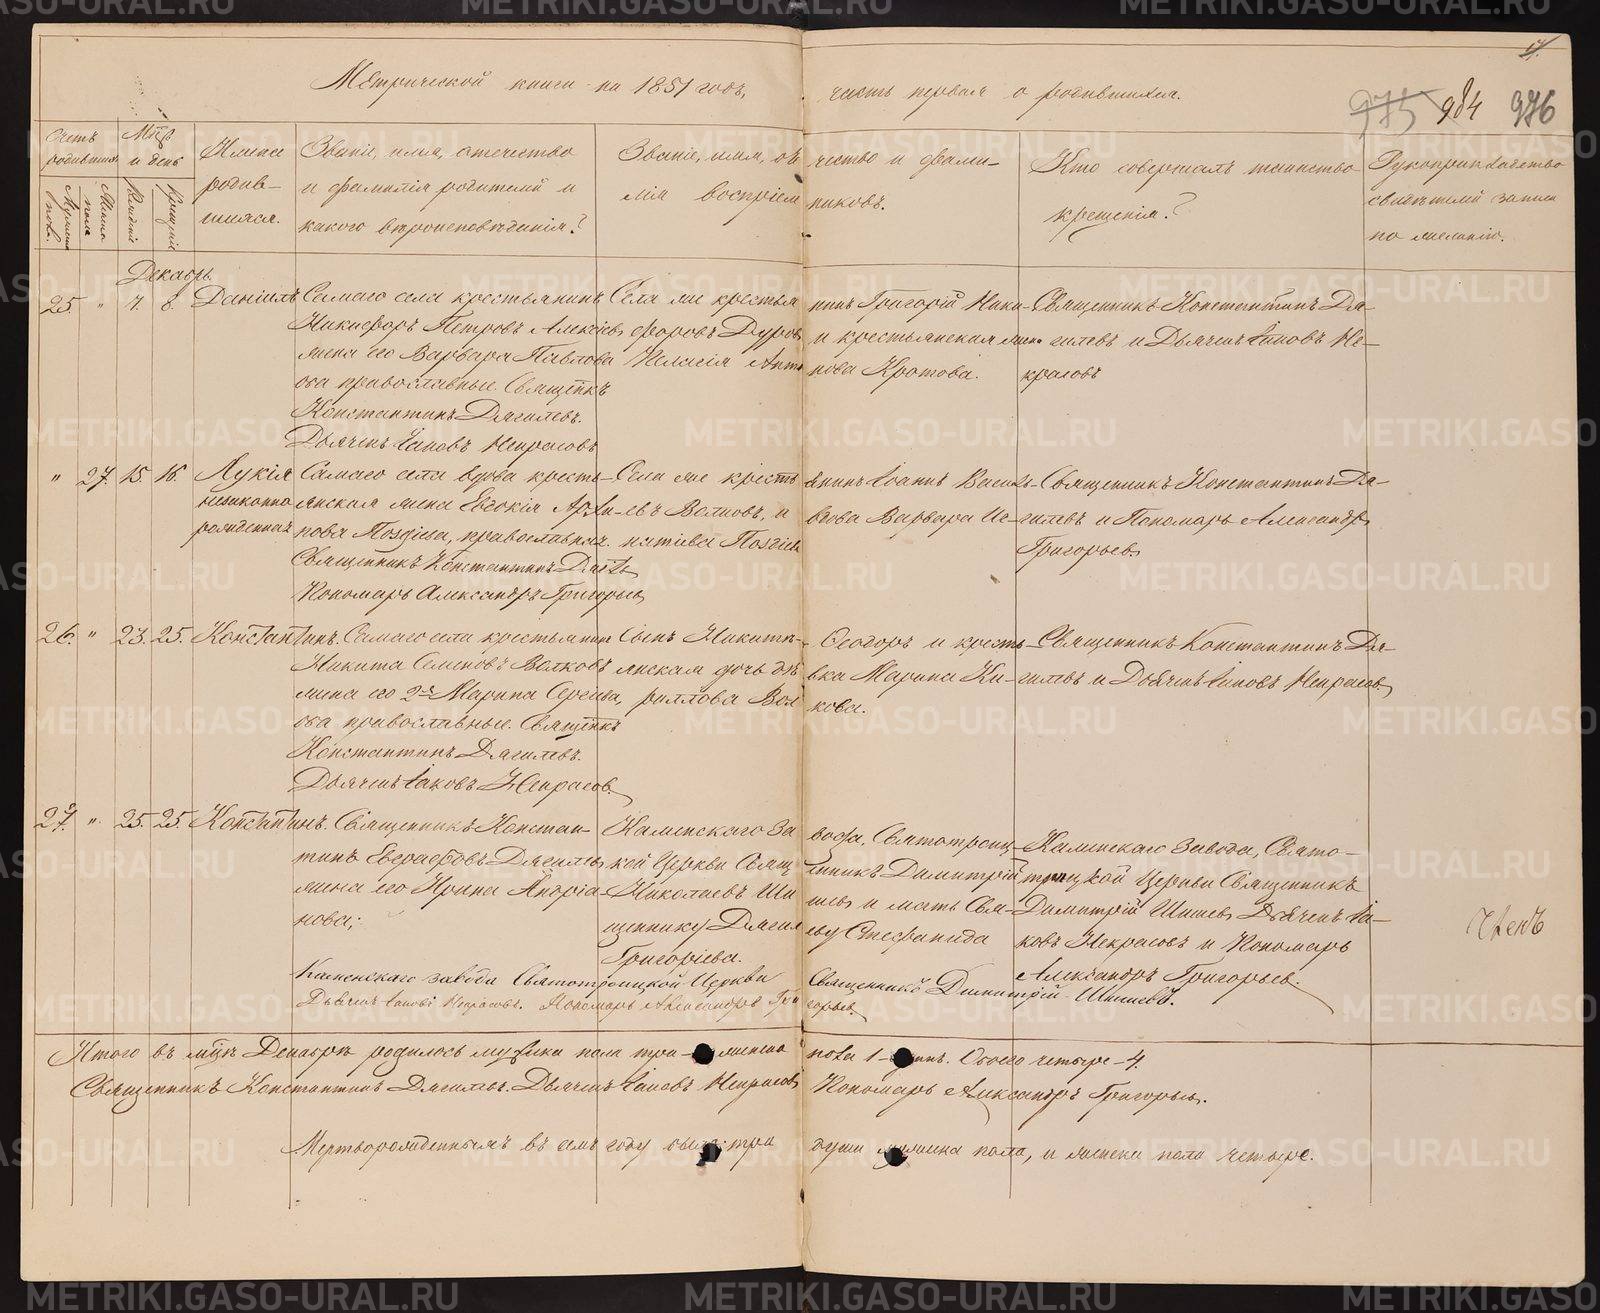 Метрической книги на 1851 годъ,
часть первая о родившихся.
975 984 976
Счетъ родившихся
Мужеска пола.
Женска пола
Мѣс. и день
Рожденія
Крещенія
Имена
родив-
шихся.
Званіе, имя, отчество
и фамилія родителей и
какого вѣроисповѣданія?
Званіе, имя, от
чество и фами-
лія воспріем
никовъ.
Кто совершалъ таинство
крещенія?
Рукоприкладство
свидѣтелей записи
по желанію.
Декабрь.
25. " 7. 8. Даніилъ
Самаго села крестьянинъ
Никифоръ Петровъ Алексѣевъ
жена его Варвара Павлова
оба православные. Священникъ
Константинъ Дягилевъ.
Дьячекъ Іаковъ Некрасовъ
Села же крестья
нинъ Григорій Ники-
форовъ Дуровъ
и крестьянская жена
Антo
нова Кротова.
Священникъ Константинъ Дя-
гилевъ и Дьячекъ Іаковъ Не-
красовъ
" 27. 15. 16. Лукія
незаконно
рожденная
Самаго села вдова кресть-
янская жена Евдокія Архи-
пова Поздѣева, православная.
Священникъ Константинъ Дягилевъ
Пономарь Александръ Григорьевъ
Села же крестъ
янинъ Іоаннъ Василь-
евъ Волковъ, и
вдова Варвара Иг-
натіева Поздѣева
Священникъ Константинъ Дя-
гилевъ и Пономарь Александръ
Григорьевъ
26. " 23. 25. Константинъ.
Самаго села крестьянинъ
Никита Семеновъ Волковъ
жена его 2я Марина Сергѣева,
оба православные. Священникъ
Константинъ Дягилевъ.
Дьячекъ Іаковъ Некрасовъ.
Сынъ Никиты-
Ѳеодоръ и кресть-
янская дочь дѣ
вка Марина Ки-
риллова Вол
кова.
Священникъ Константинъ Дя-
гилевъ и Дьячекъ Іаковъ Некрасовъ
27. " 25. 25. Константинъ.
Священникъ Констан-
тинъ Евграфовъ Дягилевъ
жена его Ирина Андріа-
нова;
Каменскаго За
вода, Святотроиц-
кой Церкви Свящ
енникъ Димитрій
Николаевъ Ши
шевъ и мать Свя-
щеннику Дягил
еву Стефанида
Григоріева.
Каменскаго Завода, Свято-
троицкой Церкви Священникъ
Димитрій Шишевъ Дьячекъ Іа-
ковъ Некрасовъ и Пономарь
Александръ Григорьевъ.
Членъ
Каменскаго завода Святотроицкой Церкви
Священникъ Димитрій Шишевъ.
Дьячекъ Іаковъ Некрасовъ. Пономарь Александръ Гри
горьевъ
Итого въ мцѣ Декабрѣ родилось мужеска пола три- женска
пола 1- одинъ. Обоего четыре-4.
Священникъ Константинъ Дягилевъ. Дьячекъ Іаковъ Некрасовъ
Пономарь Александръ Григорьевъ.
Мертворожденныхъ въ семъ году было: три
души мужеска пола, и женска пола четыре.
METRIKI.GASO-URAL.RU